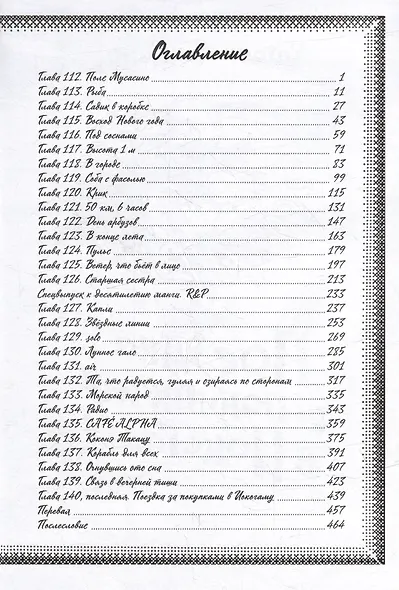 Оглавление
Глава 112. Поле Мусасино 1
Глава 113. Рыба 11
Глава 114. Садик в коробке 27
Глава 115. Восход Нового года 43
Глава 116. Под соснами 59
Глава 117. Высота 1 м 71
Глава 118. В городе 83
Глава 119. Соба с фасолью 99
Глава 120. Крик 115
Глава 121. 50 км, 6 часов 131
Глава 122. День арбузов 147
Глава 123. В конце лета 163
Глава 124. Пульс 179
Глава 125. Ветер, что бьёт в лицо 197
Глава 126. Старшая сестра 213
Спецвыпуск к десятилетию манги. R&P 233
Глава 127. Капли 237
Глава 128. Звёздные линии 253
Глава 129. solo 269
Глава 130. Лунное гало 285
Глава 131. air 301
Глава 132. Та, что радуется, гуляя и озираясь по сторонам 317
Глава 133. Морской народ 335
Глава 134. Радио 343
Глава 135. CAFÉ ALPHA 359
Глава 136. Коконэ Такацу 375
Глава 137. Корабль для всех 391
Глава 138. Очнувшись ото сна 407
Глава 139. Связь в вечерней тиши 423
Глава 140, последняя. Поездка за покупками в Иокогаму 439
Перевал 457
Послесловие 464